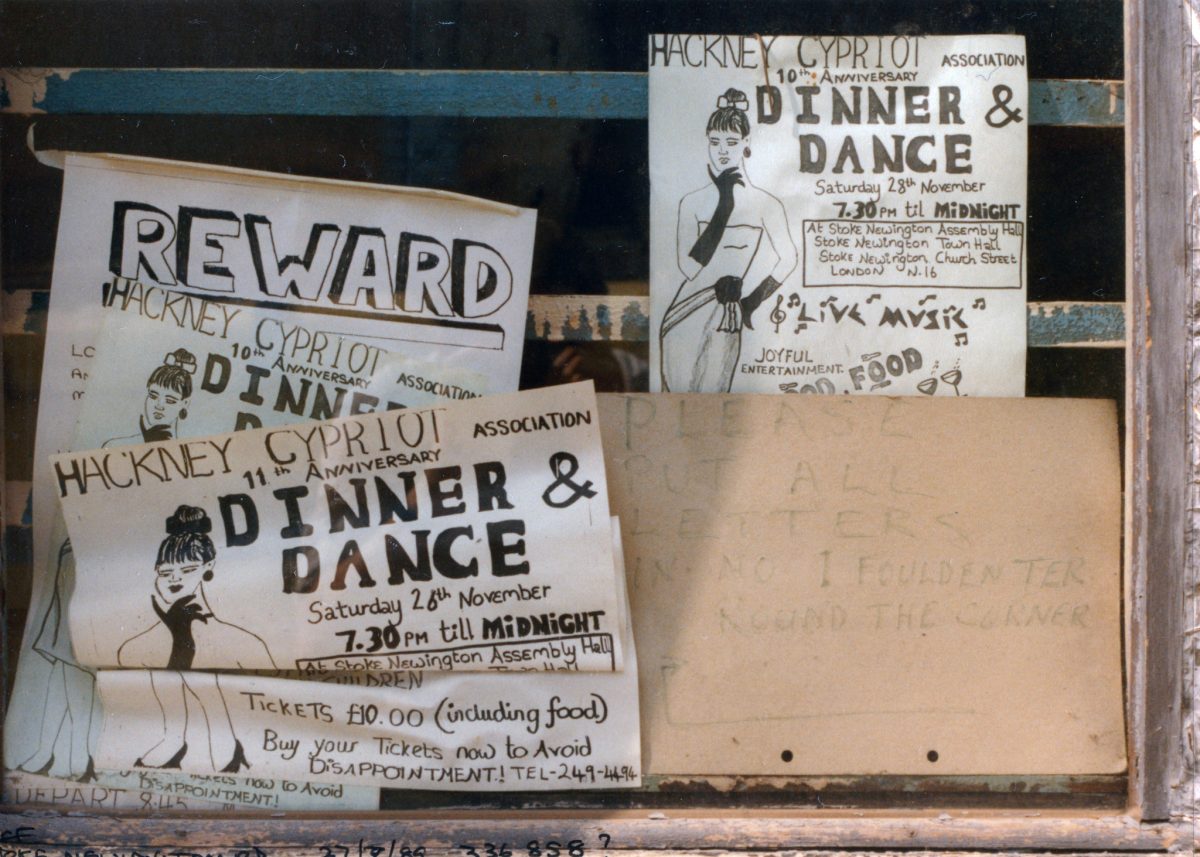 REWARD
LO
HACKNEY CYPRIOT
10th ANNIVERSARY ASSOCIATION
DINNE
HACKNEY CYPRIOT ASSOCIATION
11th ANNIVERSARY
DINNER &
DANCE
Saturday 28th November
7.30 PM till MiDNiGHT
At Stoke Newington Assembly Hall
Town Hall
CHILDREN
TICKETS £10.00 (including food)
Buy your Tickets now to Avoid
DISAPPOINTMENT! TEL-249-4494
Tickets now to Avoid
DISAPPOINTMENT!
DEPART 8:45
HACKNEY CYPRIOT ASSOCIATION
10th ANNIVERSARY
DINNER &
DANCE
Saturday 28th November
7.30 PM til MiDNiGHT
At Stoke Newington Assembly Hall
Stoke Newington Town Hall
Stoke Newington Church Street
LONDON N.16
LiVE MUSiC
JOYFUL
ENTERTAINMENT
FOOD
PLEASE
PUT ALL
LETTERS
IN NO 1 FOULDEN TER
ROUND THE CORNER
336 858 ?